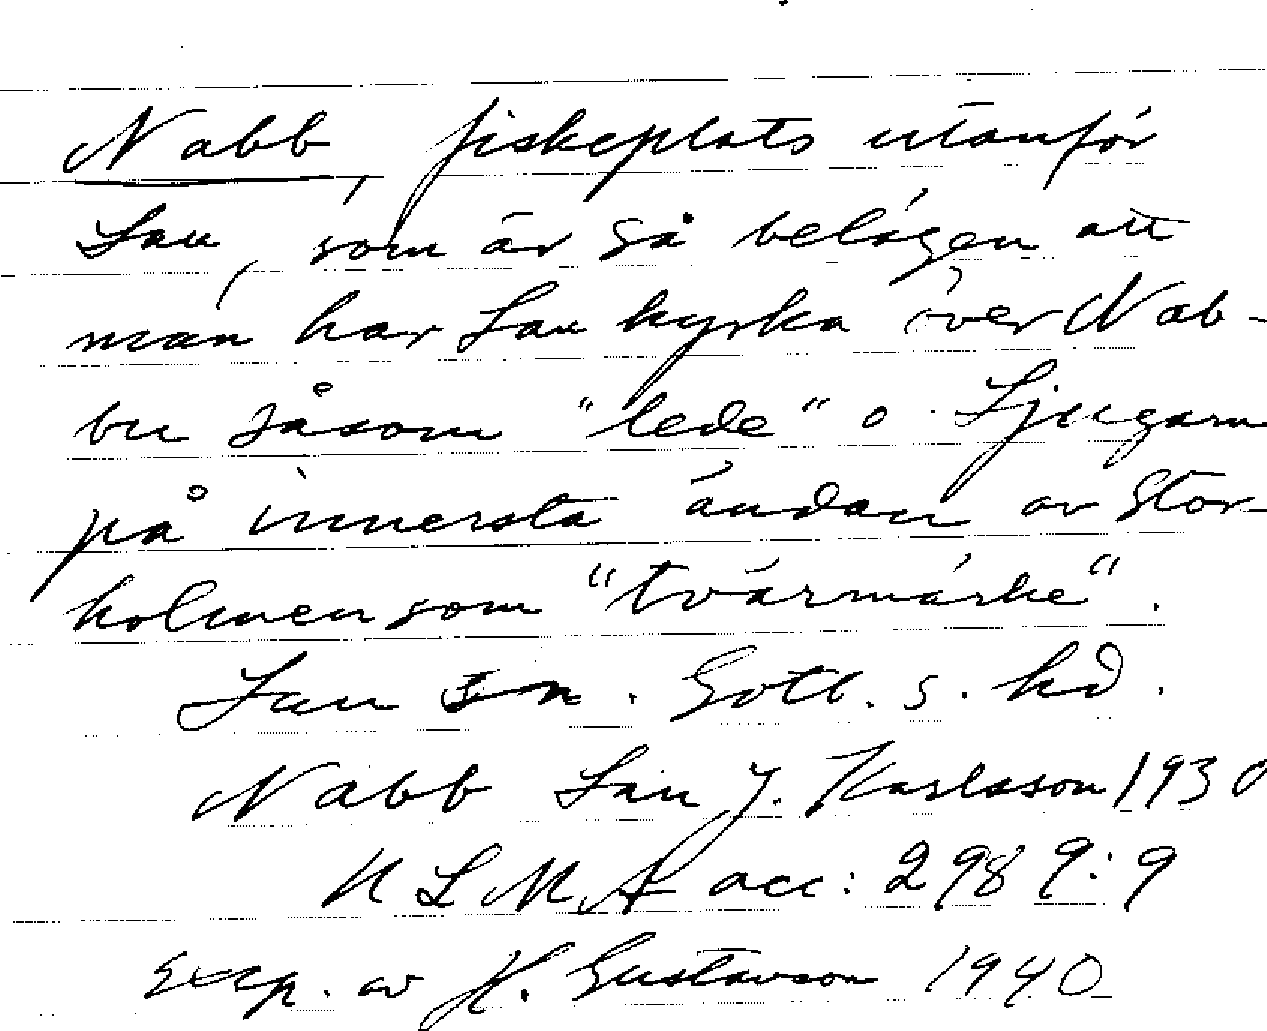 Nabb, fiskeplats utanför
Lau, som är så belägen att
man har Lau kyrka över Nab-
bu såsom "lede" o. Ljugarn
på innersta ändan av Stor-
holmen som "tvärmärke".
Lau sn. Gotl. s. hd.
Nabb Lau J. Karlsson 1930
ULMA acc: 2989:9
Exp. av H. Gustavson 1940